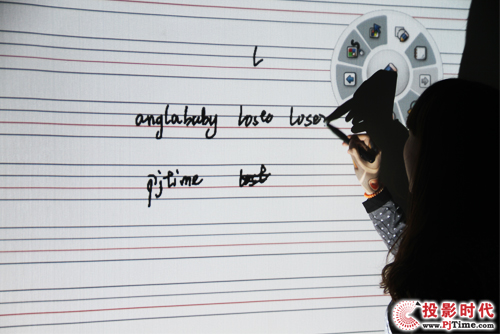 L
anglababy loseo loser
pjtime
投影时代
www.PjTime.com